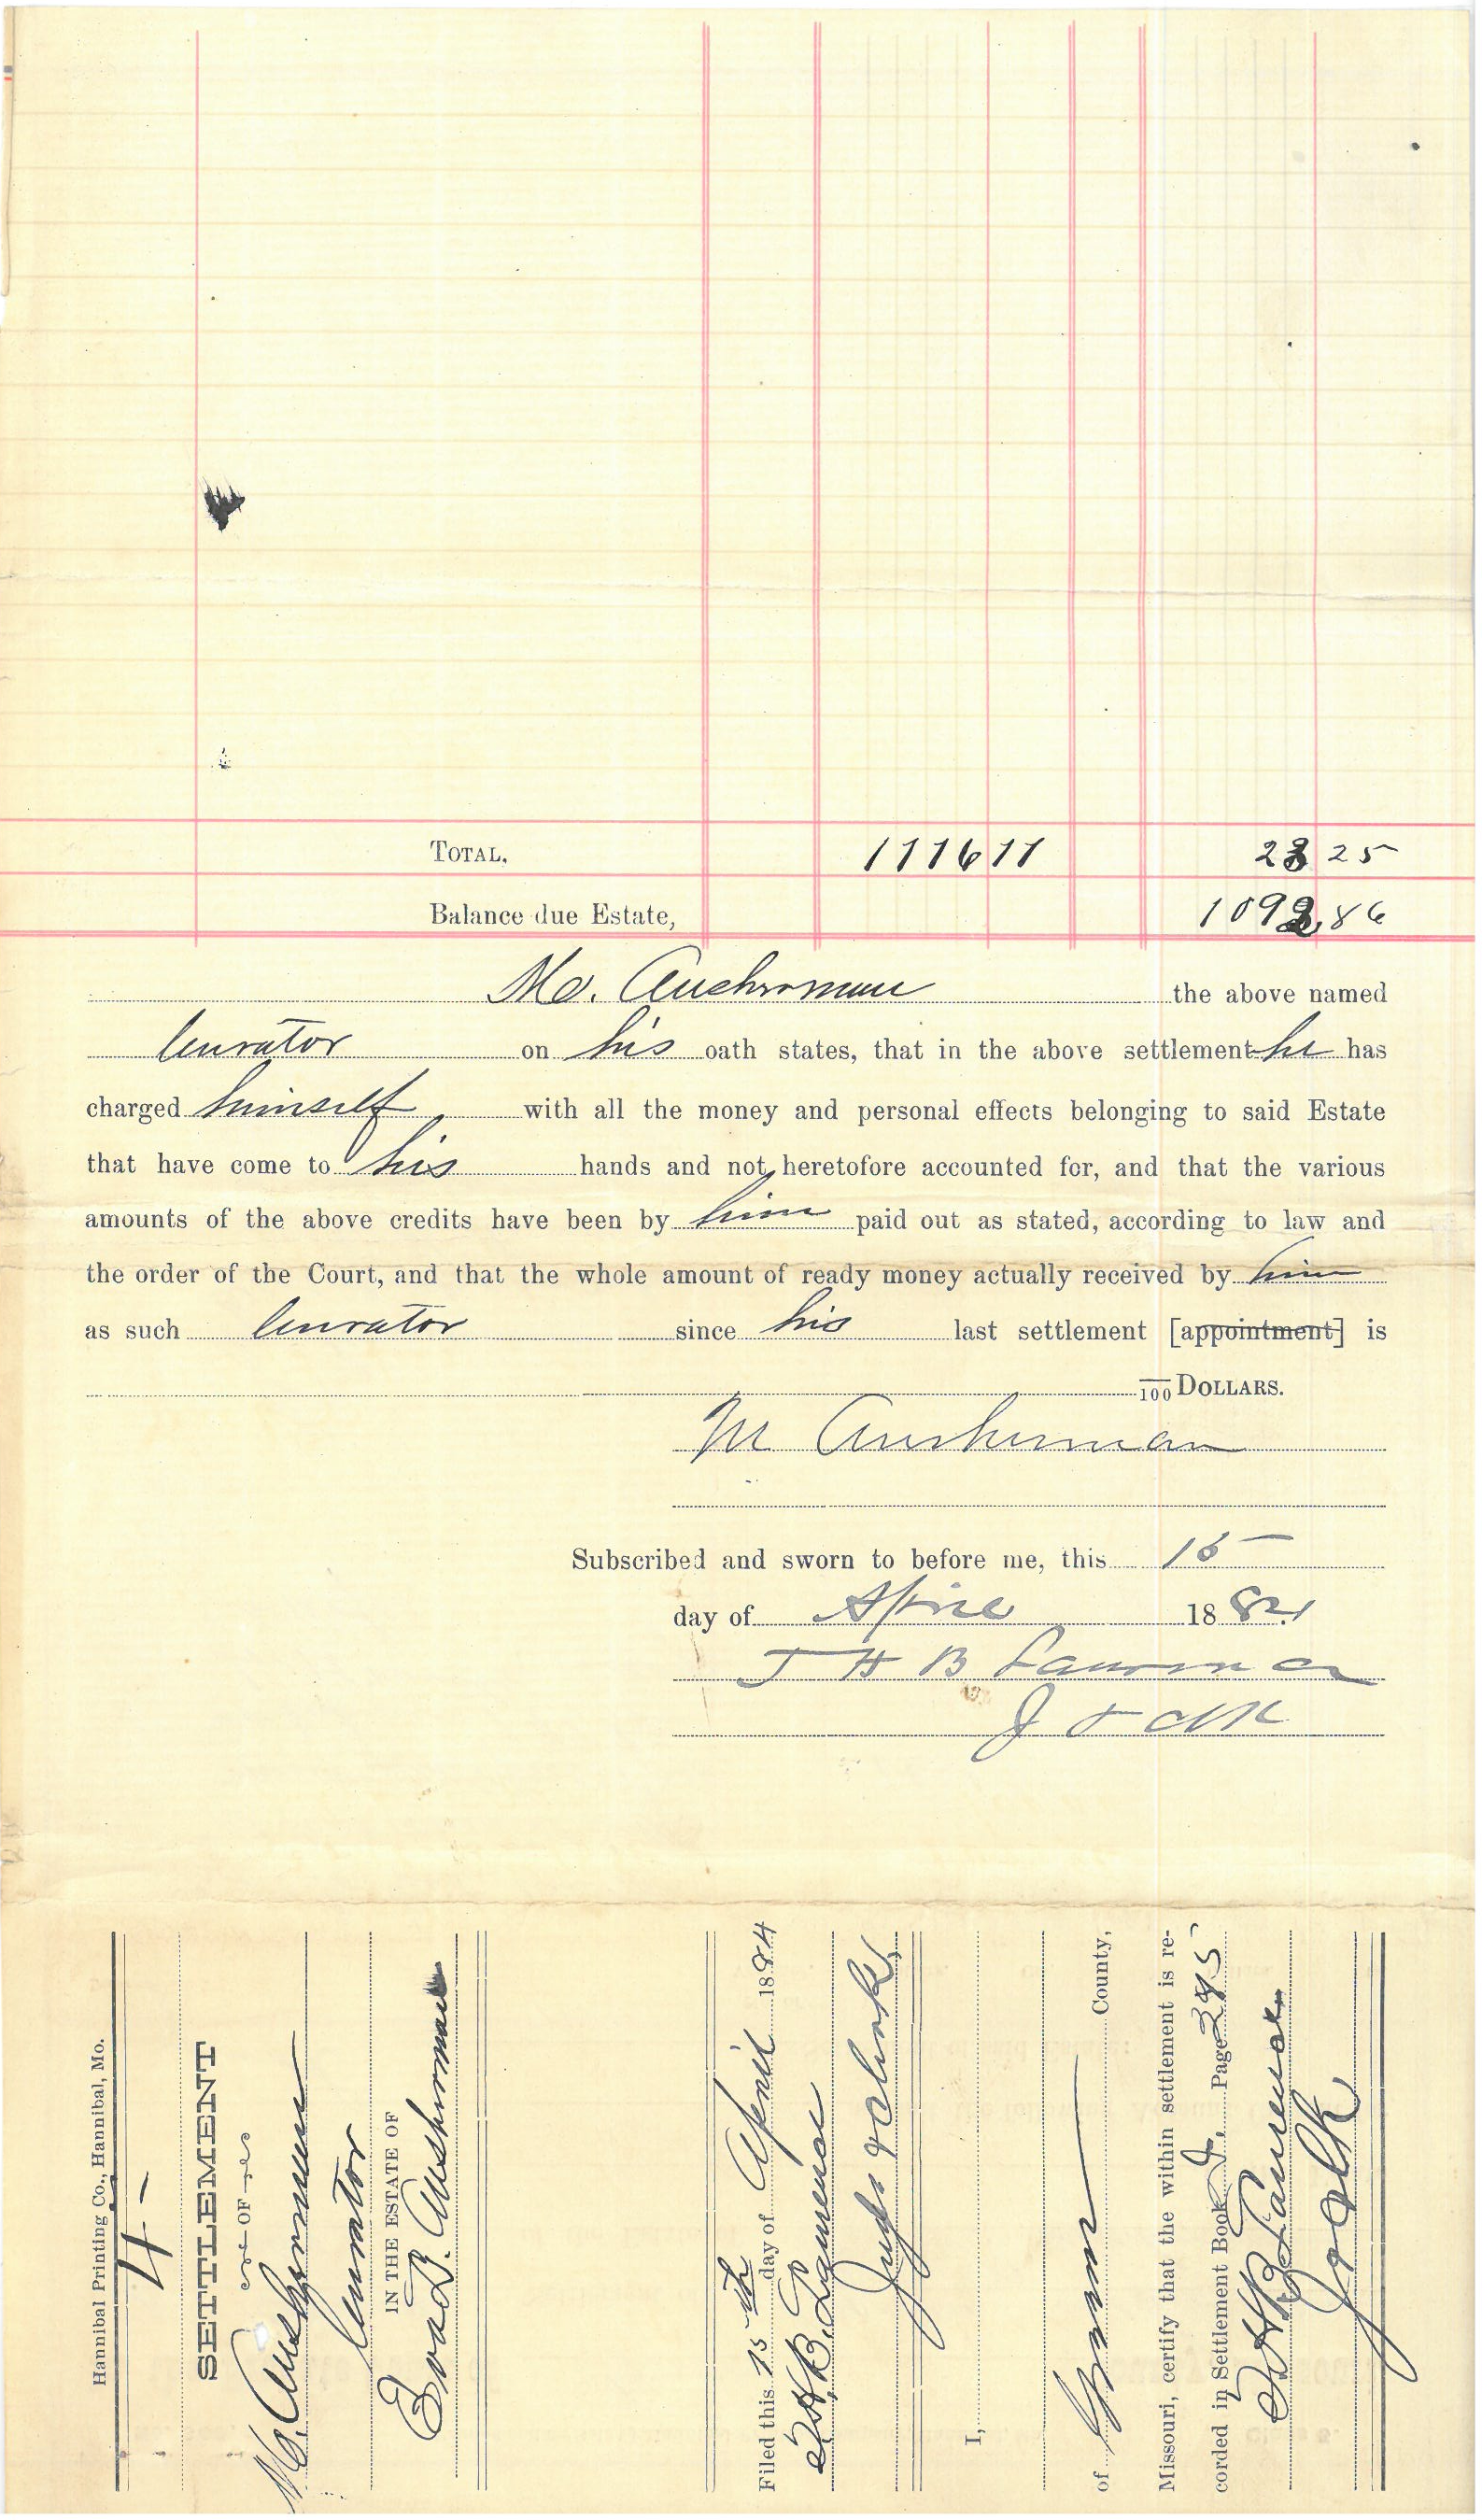 TOTAL, 1116 11 23 25
Balance due Estate, 1092.86
M. Ausherman the above named
Curator on his oath states, that in the above settlement he has
charged himself with all the money and personal effects belonging to said Estate
that have come to his hands and not heretofore accounted for, and that the various
amounts of the above credits have been by him paid out as stated, according to law and
the order of the Court, and that the whole amount of ready money actually received by him
as such Curator since his last settlement [appointment] is
/100 DOLLARS.
M Ausherman
Subscribed and sworn to before me, this 15
day of April 1884
T H B
Hannibal Printing Co., Hannibal, Mo.
4-
SETTLEMENT
OF
M. Ausherman
Curator
IN THE ESTATE OF
Eva B. Ausherman
Filed this 15th day of April 1884
Judge & Clerk
I,
of County,
Missouri, certify that the within settlement is re-
corded in Settlement Book Page 395